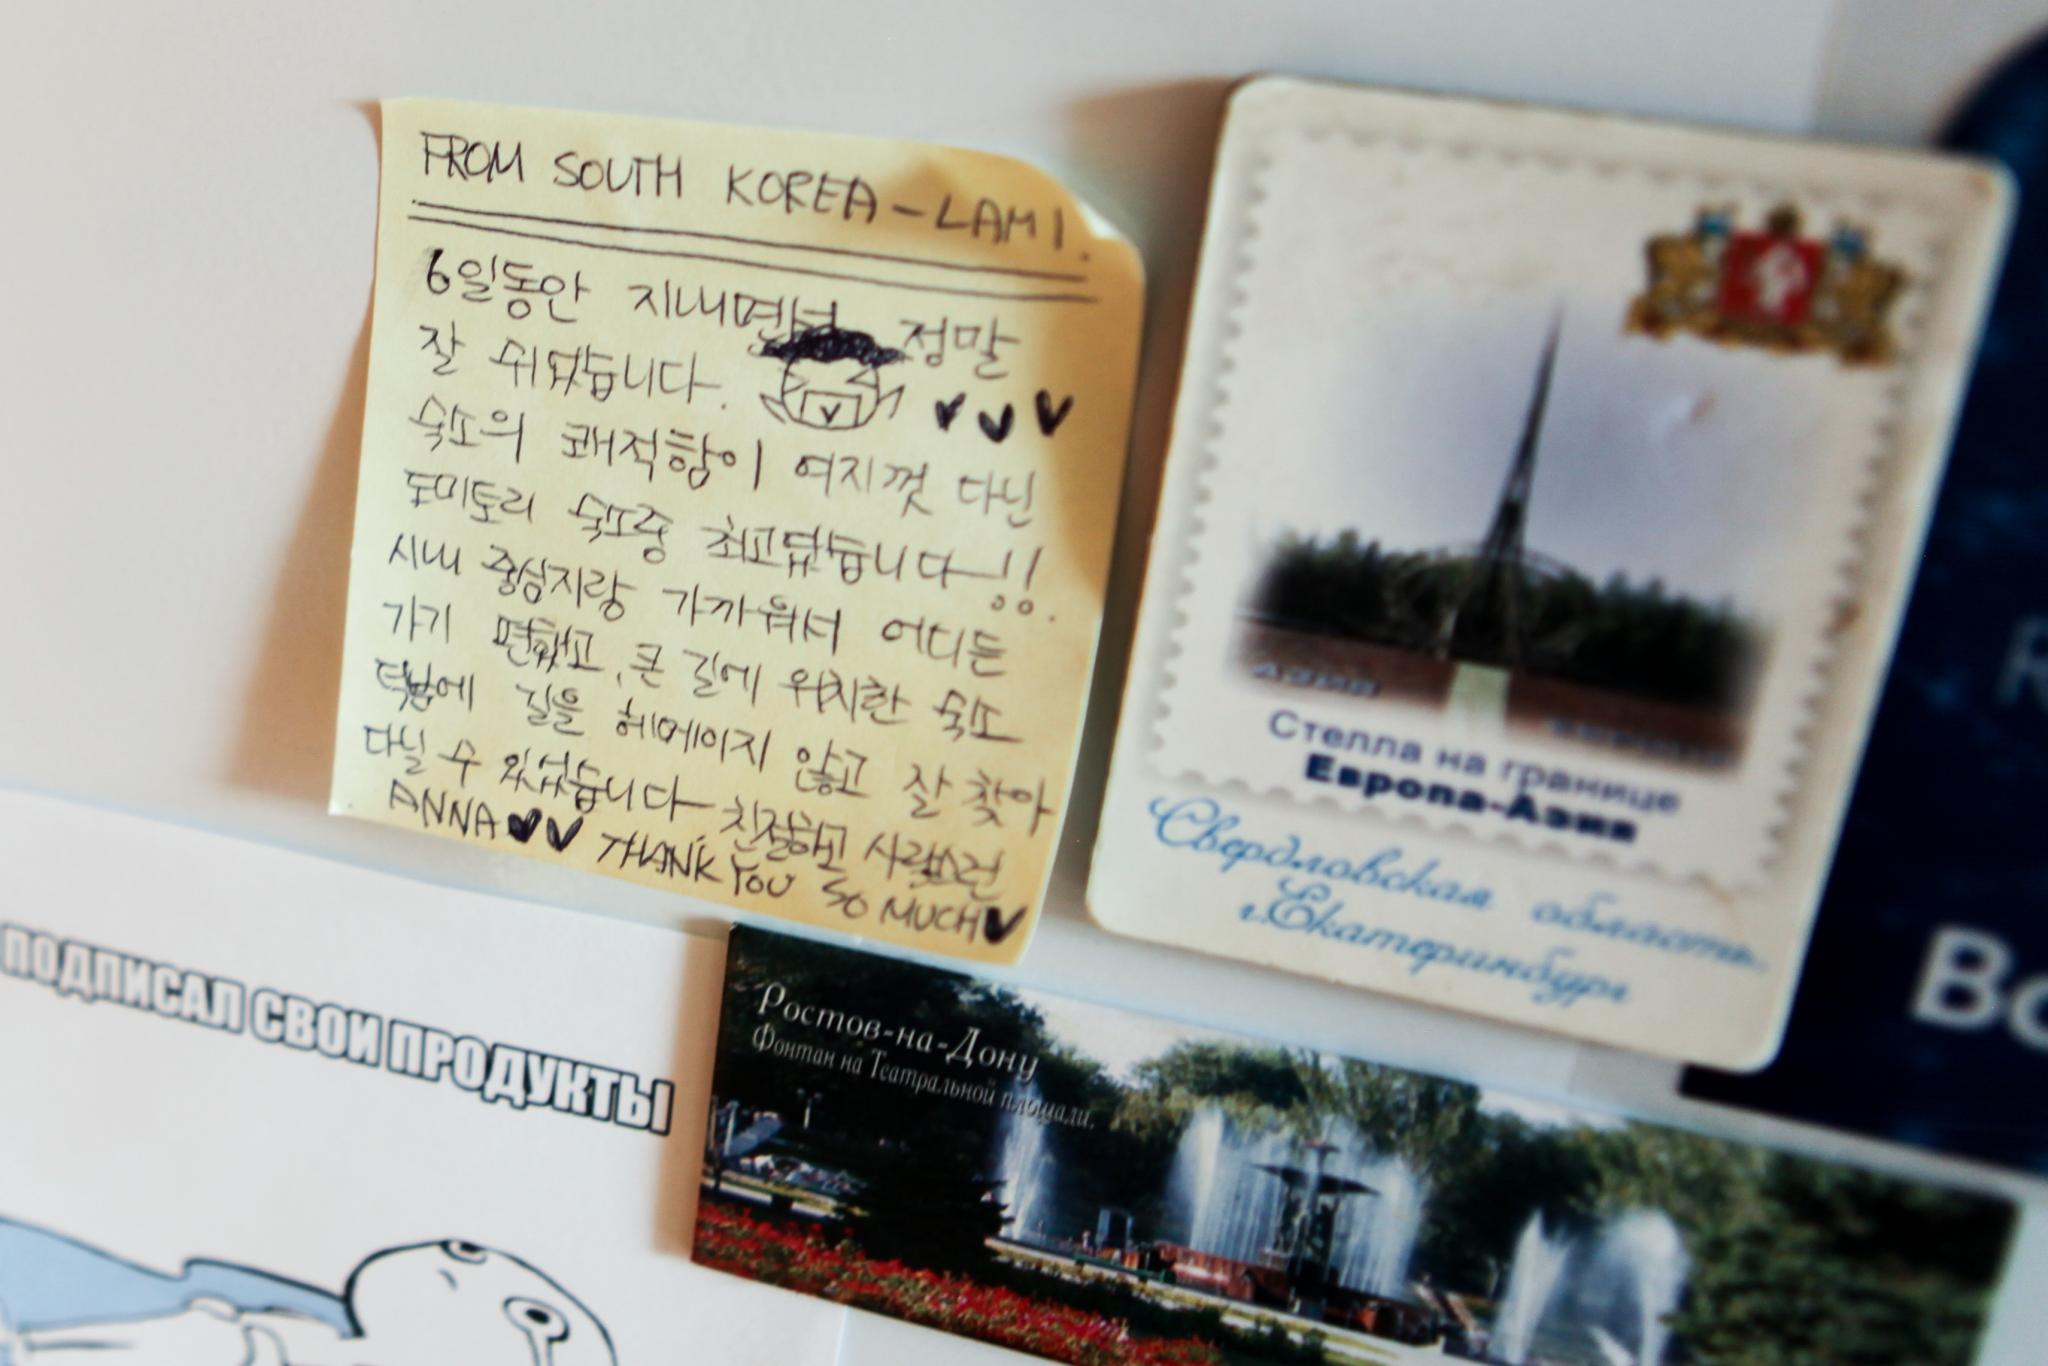 FROM SOUTH KOREA - LAMI.
6일동안 지내면서 정말
잘 쉬었습니다.
숙소의 쾌적함이 여지껏 다닌
도미토리 숙소중 최고였습니다!!
시내 중심지랑 가까워서 어디든
가기 편했고, 큰 길에 위치한 숙소
덕분에 길을 헤메이지 않고 잘 찾아
다닐 수 있었습니다 친절하고 사랑스런
ANNA THANK YOU SO MUCH
Стелла на границе
Европа-Азия
Свердловская область,
г.Екатеринбург
ПОДПИСАЛ СВОИ ПРОДУКТЫ
Ростов-на-Дону
Фонтан на Театральной площади.